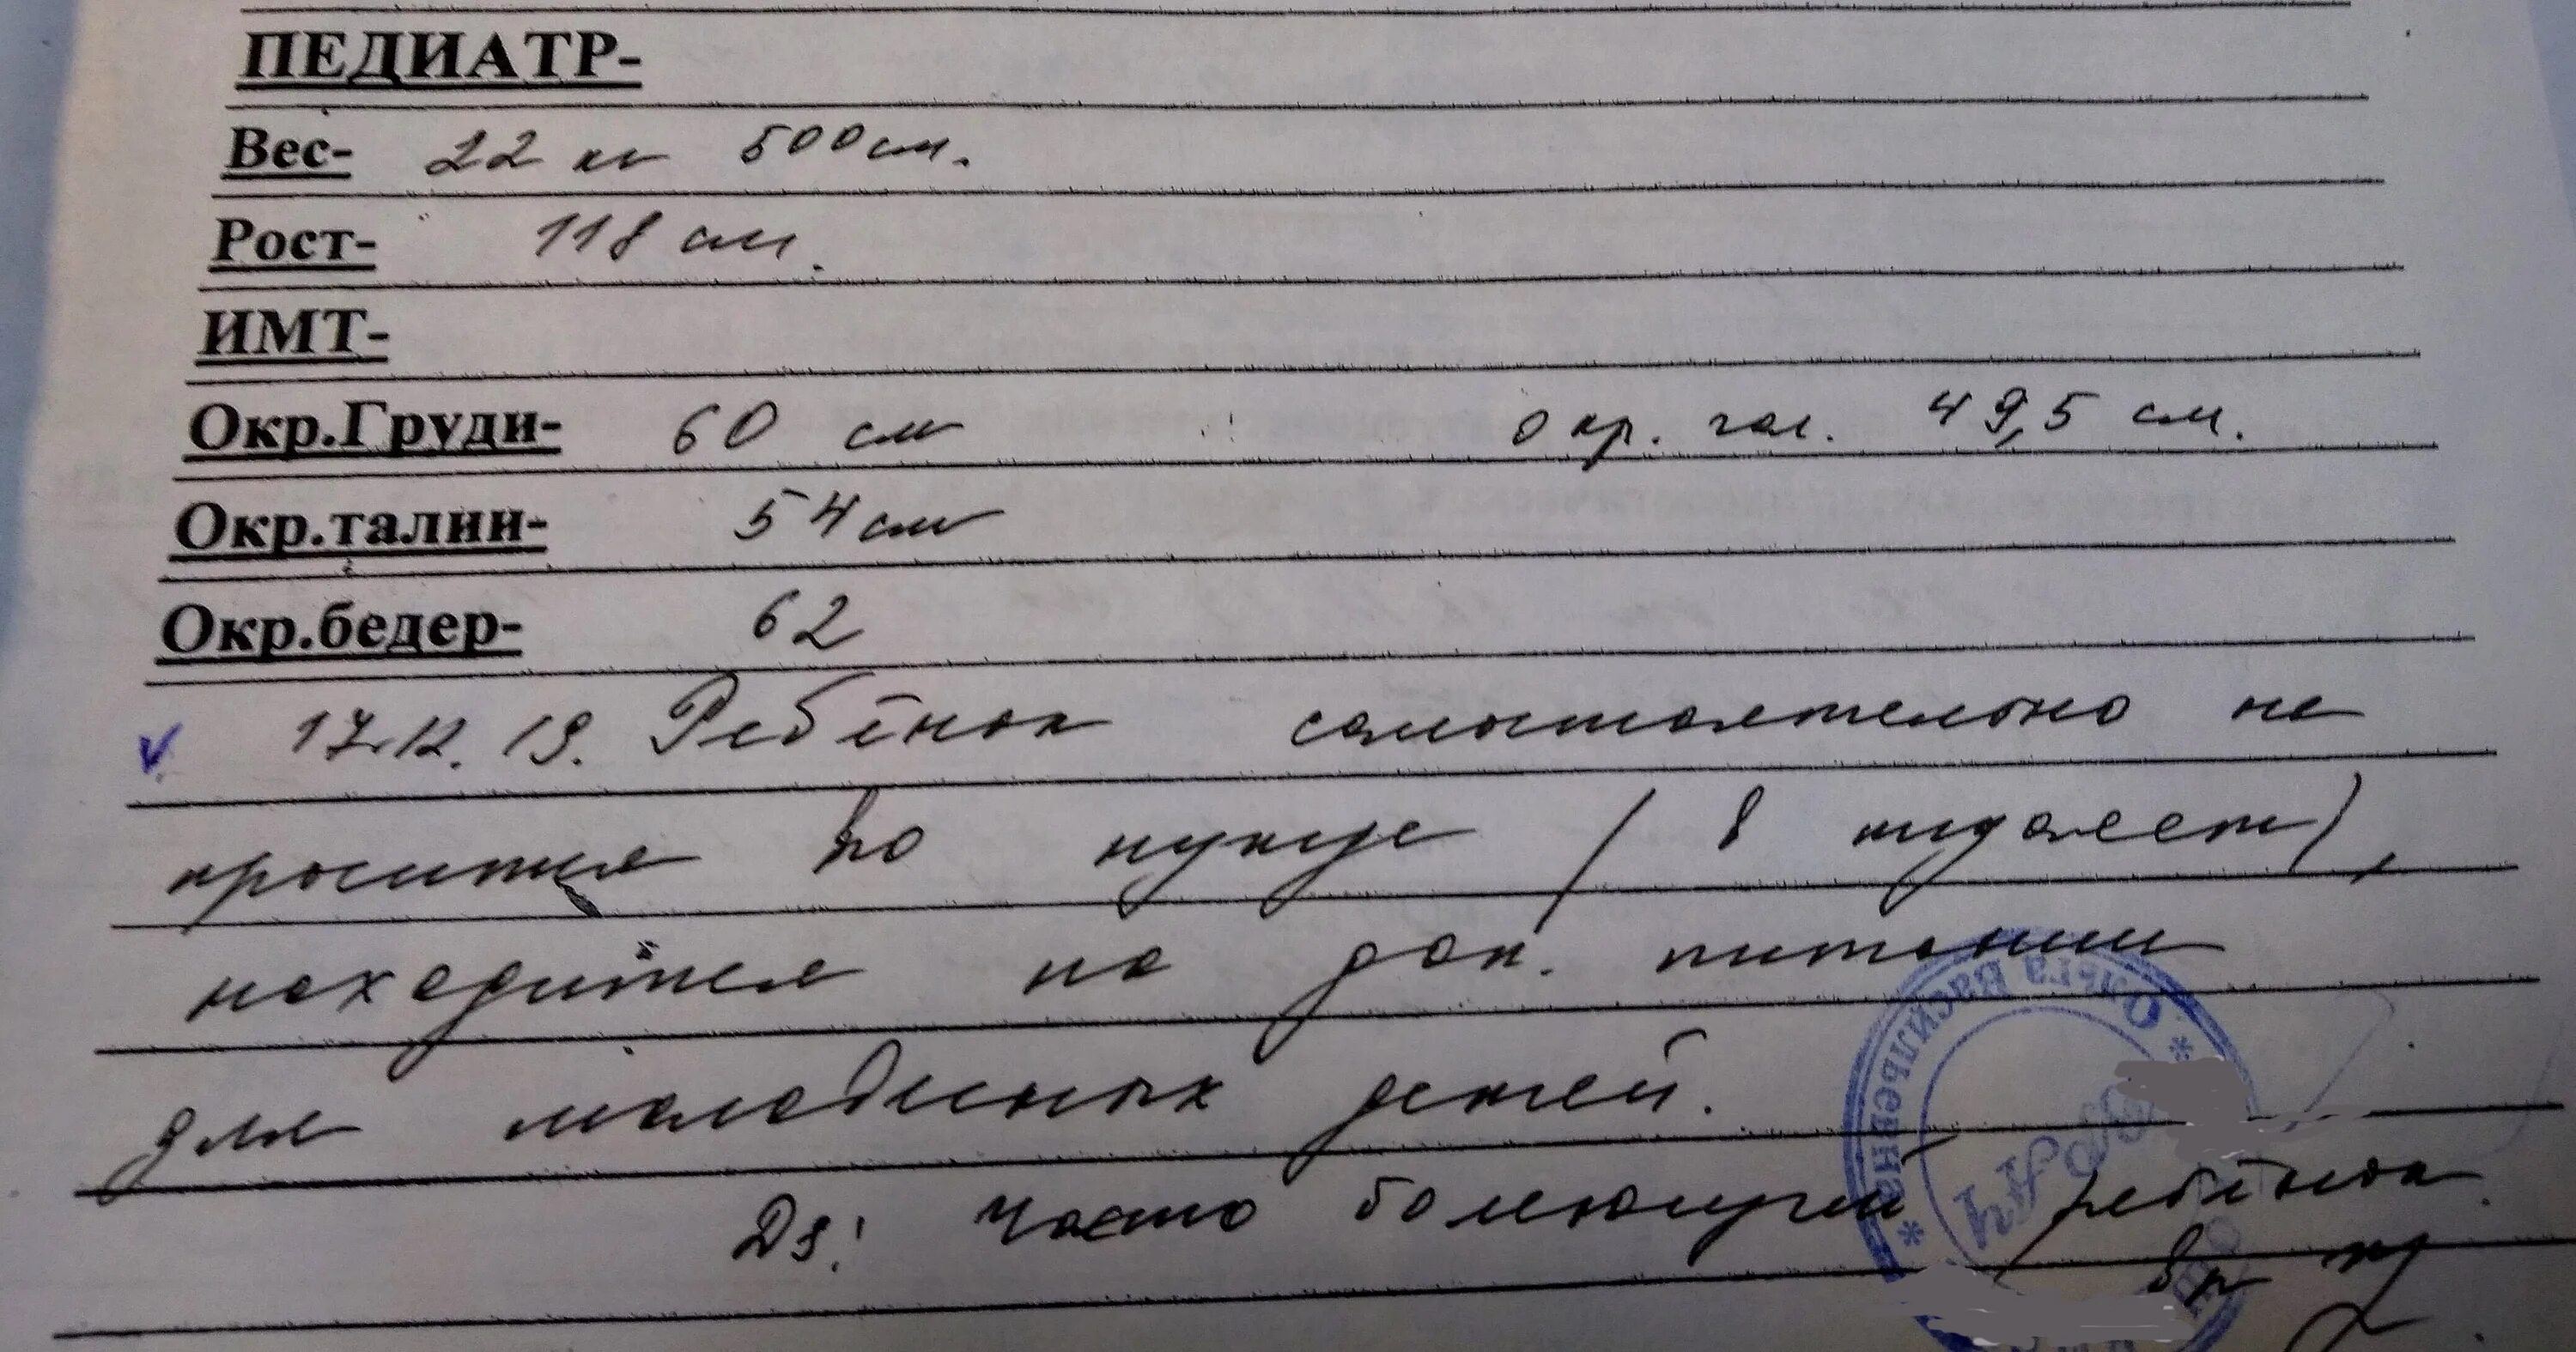 ПЕДИАТР-
Вес- 22 кг 500 см.
Рост- 118 см.
ИМТ-
Окр.Груди- 60 см окр. гол. 49,5 см.
Окр.талии- 54 см
Окр.бедер- 62
V 17.12.19. Ребёнок самостоятельно не
просится по нужде / в туалет),
находится на доп. питании
для малоежных детей.
Ds: Часто болеющий ребёнок.
Ольга Васильевна
Врач